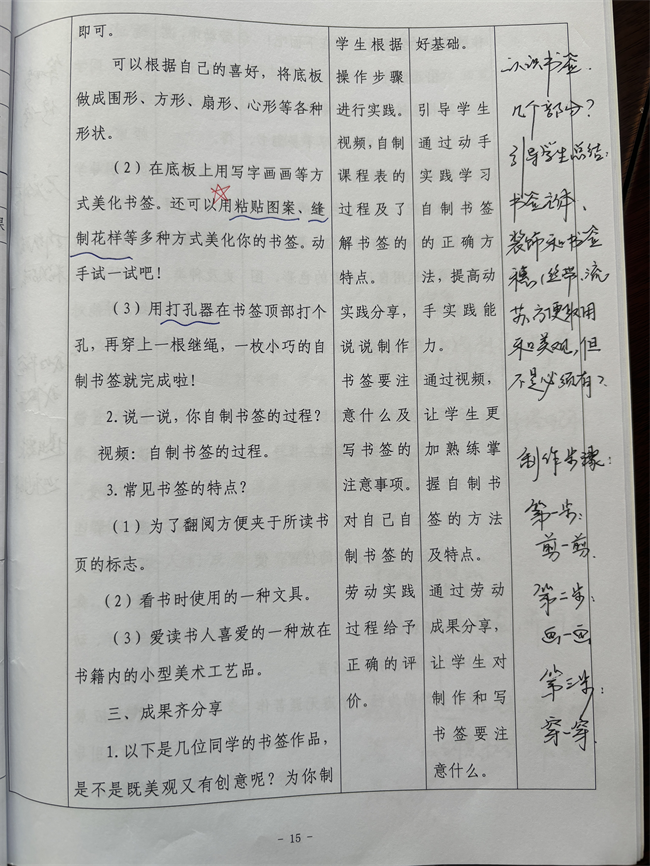 即可。
可以根据自己的喜好，将底板
做成围形、方形、扇形、心形等各种
形状。
（2）在底板上用写字画画等方
式美化书签。还可以用粘贴图案、缝
制花样等多种方式美化你的书签。动
手试一试吧！
（3）用打孔器在书签顶部打个
孔，再穿上一根继绳，一枚小巧的自
制书签就完成啦！
2.说一说，你自制书签的过程？
视频：自制书签的过程。
3.常见书签的特点？
（1）为了翻阅方便夹于所读书
页的标志。
（2）看书时使用的一种文具。
（3）爱读书人喜爱的一种放在
书籍内的小型美术工艺品。
三、成果齐分享
1.以下是几位同学的书签作品，
是不是既美观又有创意呢？为你制
学生根据
操作步骤
进行实践。
视频，自制
课程表的
过程及了
解书签的
特点。
实践分享，
说说制作
书签要注
意什么及
写书签的
注意事项。
对自己自
制书签的
劳动实践
过程给予
正确的评
价。
好基础。
引导学生
通过动手
实践学习
自制书签
的正确方
法，提高动
手实践能
力。
通过视频，
让学生更
加熟练掌
握自制书
签的方法
及特点。
通过劳动
成果分享，
让学生对
制作和写
书签要注
意什么。
认识书签.
几个部分？
引导学生总结：
书签主体、
装饰和书签
穗（丝带、流
苏，方便取用
和美观，但
不是必须有）。
制作步骤：
第一步：
剪一剪.
第二步：
画一画
第三步：
穿一穿.
- 15 -